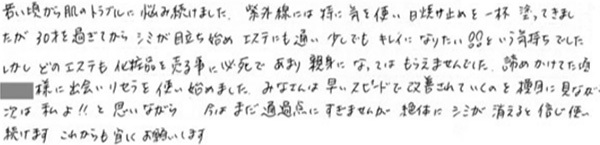 若い頃から肌のトラブルに悩み続けました。紫外線には特に気を使い日焼け止めを一杯塗ってきまし
たが 30才を過ぎてからシミが目立ち始め エステにも通い 少しでも キレイになりたい!!という気持ちでした
しかし どのエステも化粧品を売る事に必死で あまり親身になってはもらえませんでした。諦めかけてた頃
様に出会いリセラを使い始めました。みなさんは早いスピードで改善されていくのを横目に見ながら
次は私よ!!と思いながら 今はまだ通過点にすぎませんが 絶体にシミが消えると信じ使い
続けます これからも宜しくお願いします